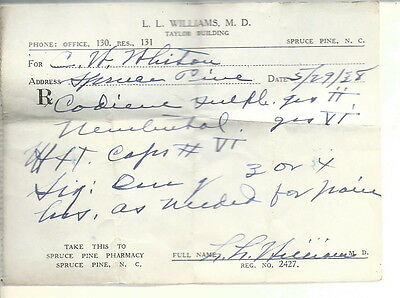 L. L. WILLIAMS, M. D.
TAYLOR BUILDING
PHONE: OFFICE, 130. RES., 131 SPRUCE PINE, N. C.
FOR C. W. Whitson
ADDRESS Spruce Pine DATE 5/29/38
℞ Codiene sulph. grs ii
Nembutal. grs VI
Mft. Caps # VI
Sig: One q 3 or 4
hrs. as needed for pain
TAKE THIS TO
SPRUCE PINE PHARMACY
SPRUCE PINE, N. C.
FULL NAME L. L. Williams M. D.
REG. NO. 2427.